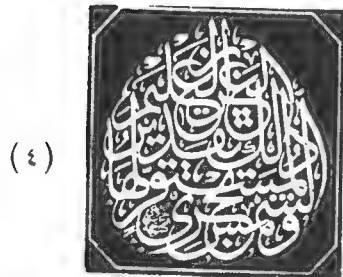 (٤)
والشمس تجري
لمستقر لها
ذلك تقدير
العزيز العليم